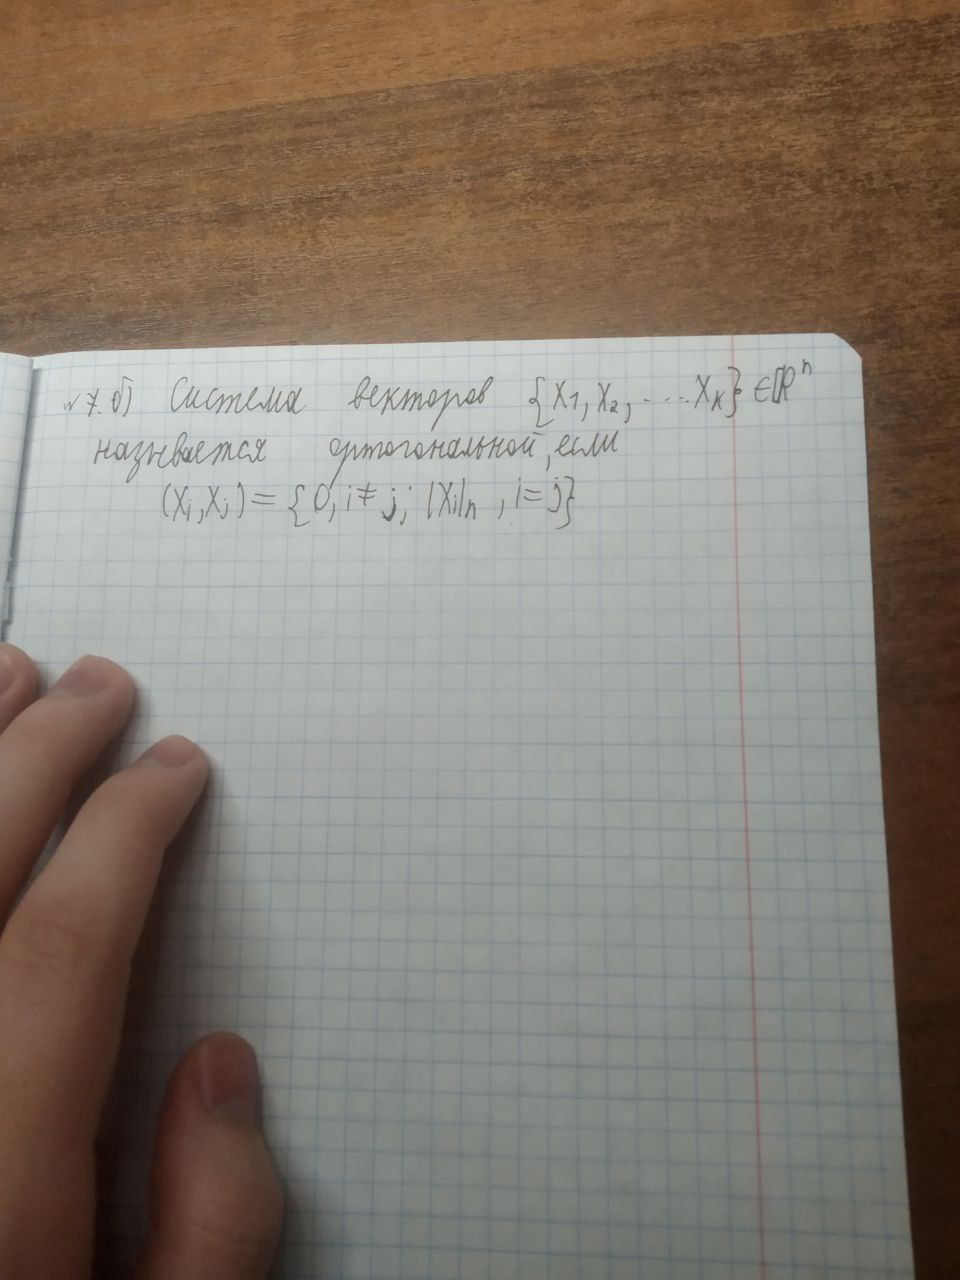 № 7. б) Система векторов {x₁, x₂, ....xₖ} ∈ ℝⁿ
называется ортогональной, если
(xᵢ, xⱼ) = {0, i ≠ j; |xᵢ|ₙ , i = j}